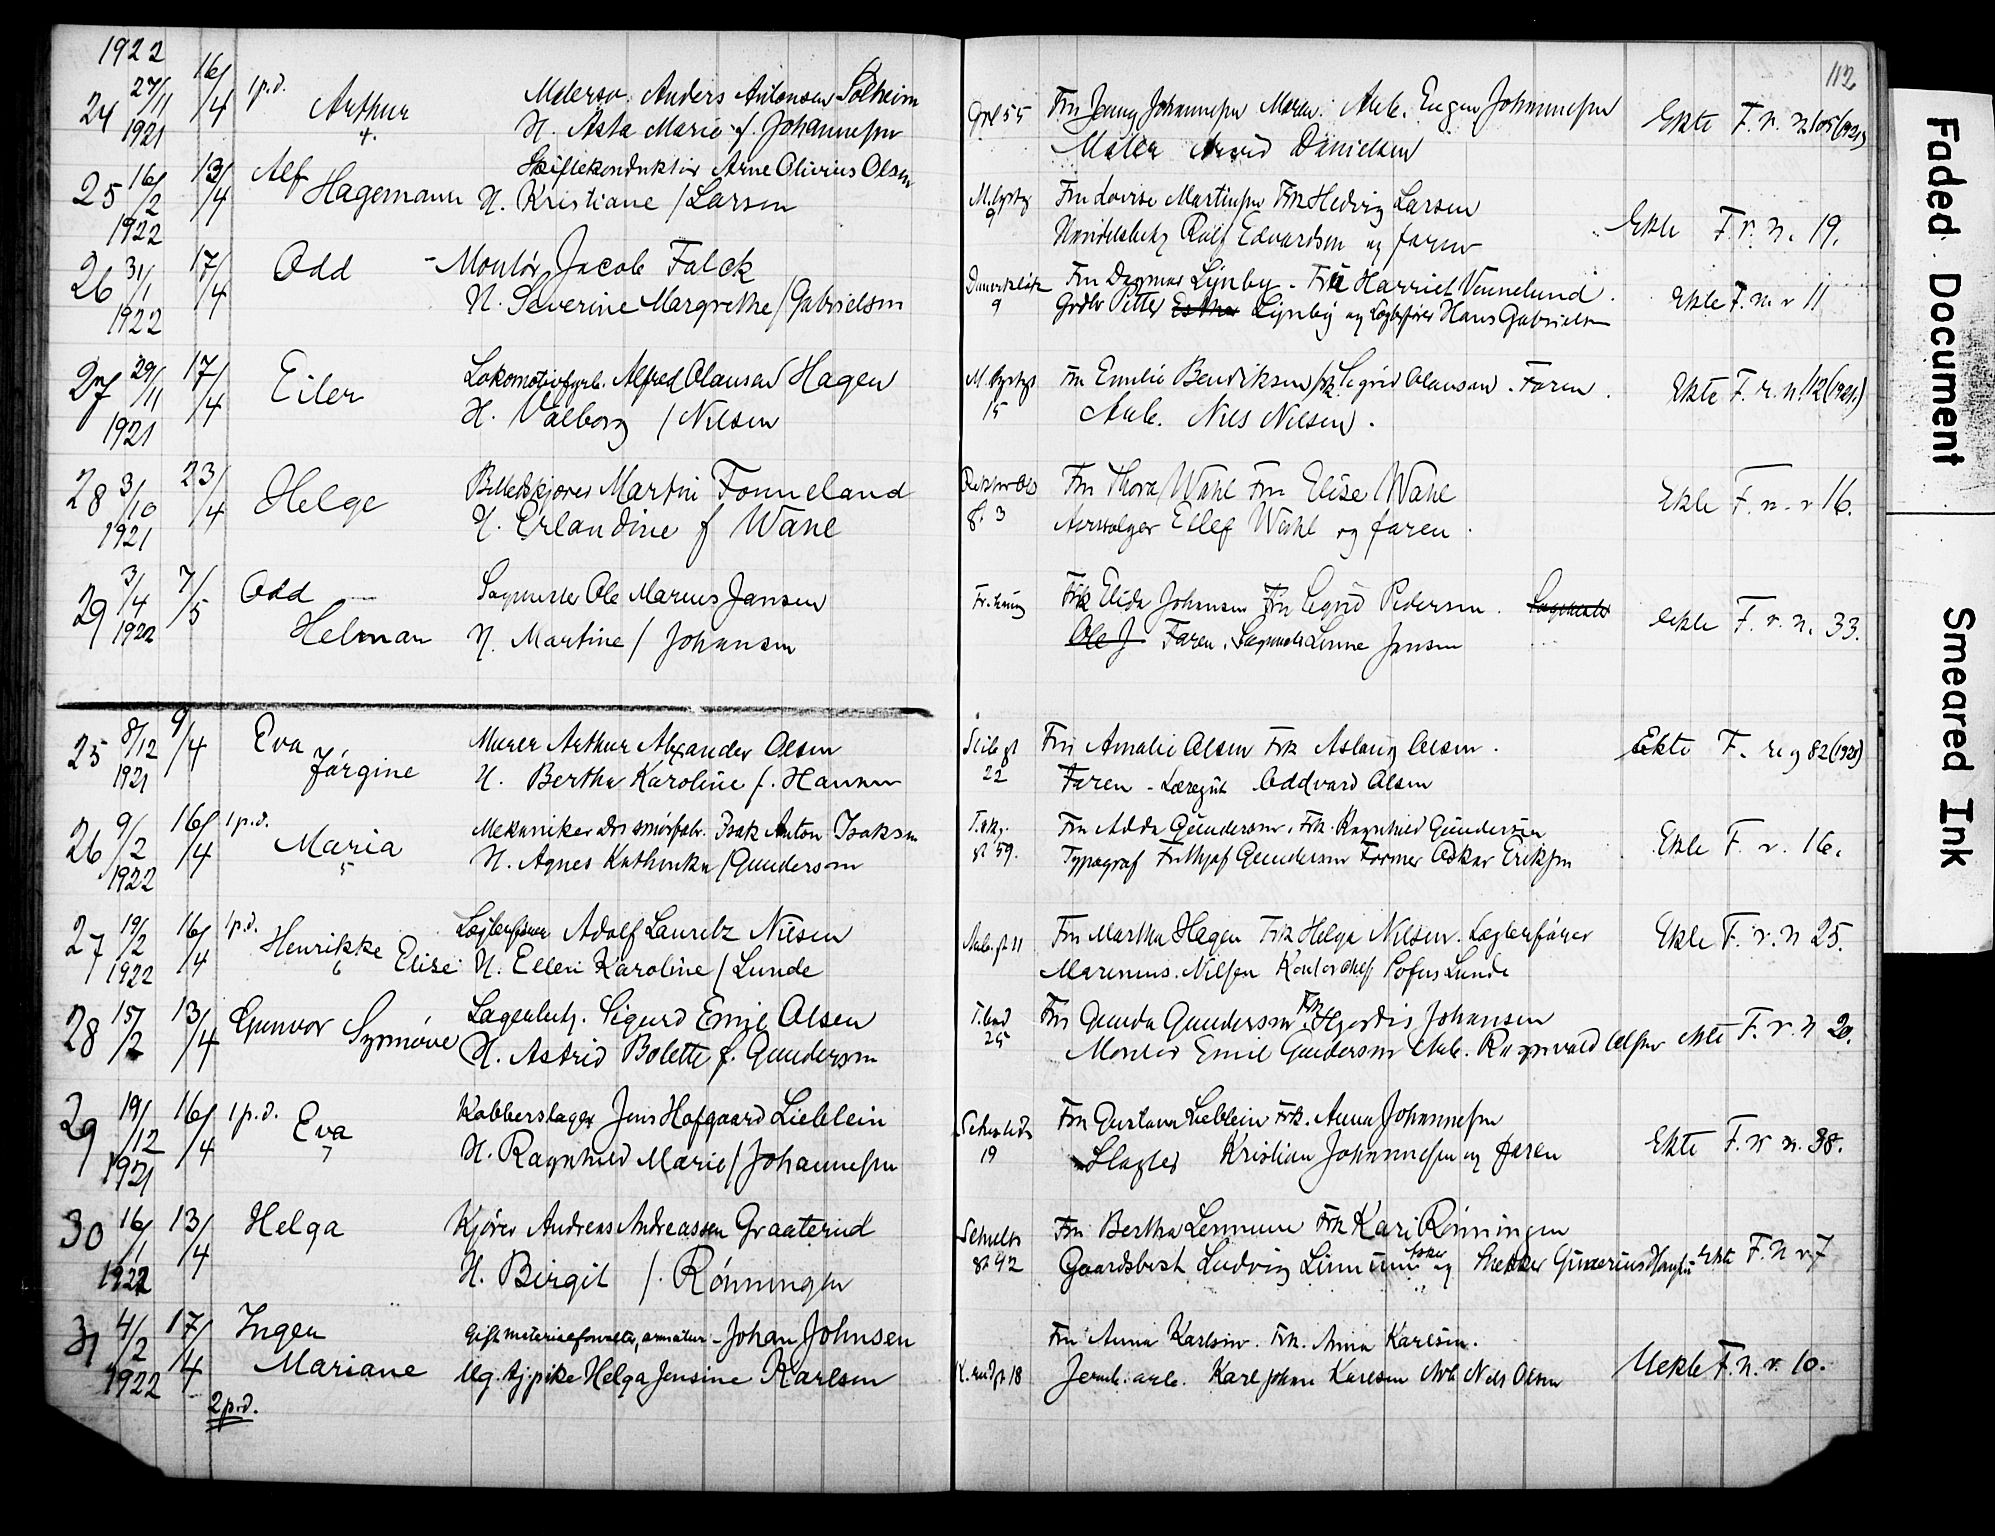 1922
112
24 27/11 1921 16/4 1 p.d. Arthur 4.
Anders Antonsen Solheim
H. Asta Marie f. Johannesen
55 Fru Jenny Johannesen Eugen Johannesen
Maler Arvid Danielsen
Ekte F. r. n. 105 (1921)
25 16/2 1922 13/4 Alf Hagemann
Skiftekonduktør Arne Olivius Olsen
H. Kristiane / Larsen
9 Fru Lovise Martinsen Frk Hedvig Larsen
Ralf Edvardsen og faren
Ekte F. r. n. 19.
26 31/1 1922 17/4 Odd
Montør Jacob Falck
H. Severine Margrethe / Gabrielsen
9 Fru Dagmar Lynby - Fru Harriet Vennelund.
Petter Lynby og Hans Gabrielsen
Ekte F. n. r 11
27 29/11 1921 17/4 Eiler
Lokomotivfyrb. Alfred Olausen Hagen
H. Valborg / Nilsen
15 Fru Emilie Bendiksen frk. Sigrid Olausen. Faren.
Arb. Nils Nilsen.
Ekte F. r. n. 112 (1921)
28 3/10 1921 23/4 Helge
Martin Fonneland
H. Erlandine f Wahl
g. 3 Fru Thora Wahl Fru Elise Wahl
Ellef Wahl og faren.
Ekte F. n. r 16.
29 3/4 1922 7/5 Odd Helman
Sagmester Ole Marius Jansen
H. Martine / Johansen
Frk Elida Johansen Fru Sigrid Pedersen. Sagmester
Ole J Faren. Jansen
Ekte F. r. n. 33.
25 8/12 1921 9/4 Eva Jørgine
Murer Arthur Alexander Olsen
H. Bertha Karoline f. Hansen
22 Fru Amalie Olsen Frk Aslaug Olsen.
Faren - Læregut Oddvard Olsen
Ekte F. reg 82 (1921)
26 9/2 1922 16/4 1 p.d. Maria 5
Mekaniker Isak Anton Isaksen
H. Agnes Kathinka / Gundersen
gt 59. Fru Adda Gundersen. Frk. Ragnhild Gundersen
Typograf Frithjof Gundersen Former Oskar Eriksen
Ekte F. r. 16.
27 19/2 1922 16/4 1 p.d. Henrikke Elise 6
Adolf Lauritz Nilsen
H. Ellen Karoline / Lunde
gt 11 Fru Martha Hagen Frk Helga Nilsen. Lagterfører
Marenius Nilsen Kontorchef Sofus Lunde
Ekte F. r. n 25.
28 15/2 13/4 Gunvor Synnøve
Lagerbetj. Sigurd Emil Olsen
H. Astrid Bolette f. Gundersen
25 Fru Gunda Gundersen Frk. Hjørdis Johansen
Montør Emil Gundersen Arb. Ragnvald Olsen
ekte F. r. n 20.
29 19/12 1921 16/4 1 p.d. Eva 7
Kobberslager Jens Hofgaard Lieblein
H. Ragnhild Marie / Johannesen
19 Fru Gustava Lieblein Frk. Anna Johannesen
Slagter Kristian Johannesen og faren
Ekte F. r n. 38.
30 16/1 1922 13/4 Helga
Kjører Andreas Andreassen Graaterud
H. Birgit / Rønningen
gt 92 Fru Bertha Lemmun Frk Kari Rønningen
Gaardsbest. Ludvig og
Ekte F. n r 7
31 4/2 1922 17/4 Inger Mariane
Gift Johan Johnsen
Ug. tj.pike Helga Jensine Karlsen
18 Fru Anna Karlsen. Frk. Anna Karlsen.
Jernb. arb. Karl Johan Karlsen Arb Nils Olsen
Uekte F. n. r. 10.
2 p.d.
Faded Document
Smeared Ink